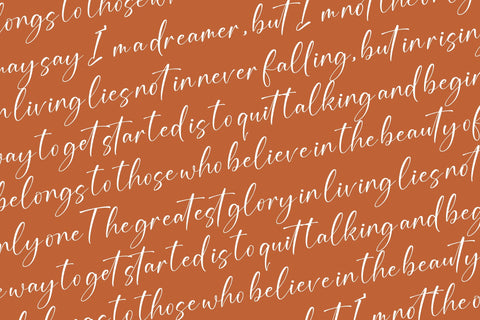 belongs to those who
may say I'm a dreamer, but I'm not the only
in living lies not in never falling, but in rising
way to get started is to quit talking and begin
belongs to those who believe in the beauty of
only one The greatest glory in living lies not
e way to get started is to quit talking and beg
belongs to those who believe in the beauty
but I'm not the o